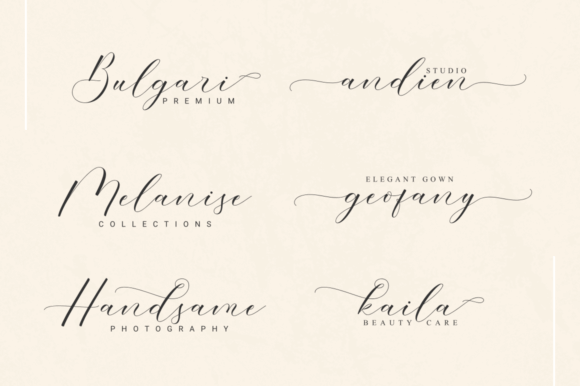 Bulgari
PREMIUM
STUDIO
andien
Melanise
COLLECTIONS
ELEGANT GOWN
geofany
Handsame
PHOTOGRAPHY
kaila
BEAUTY CARE